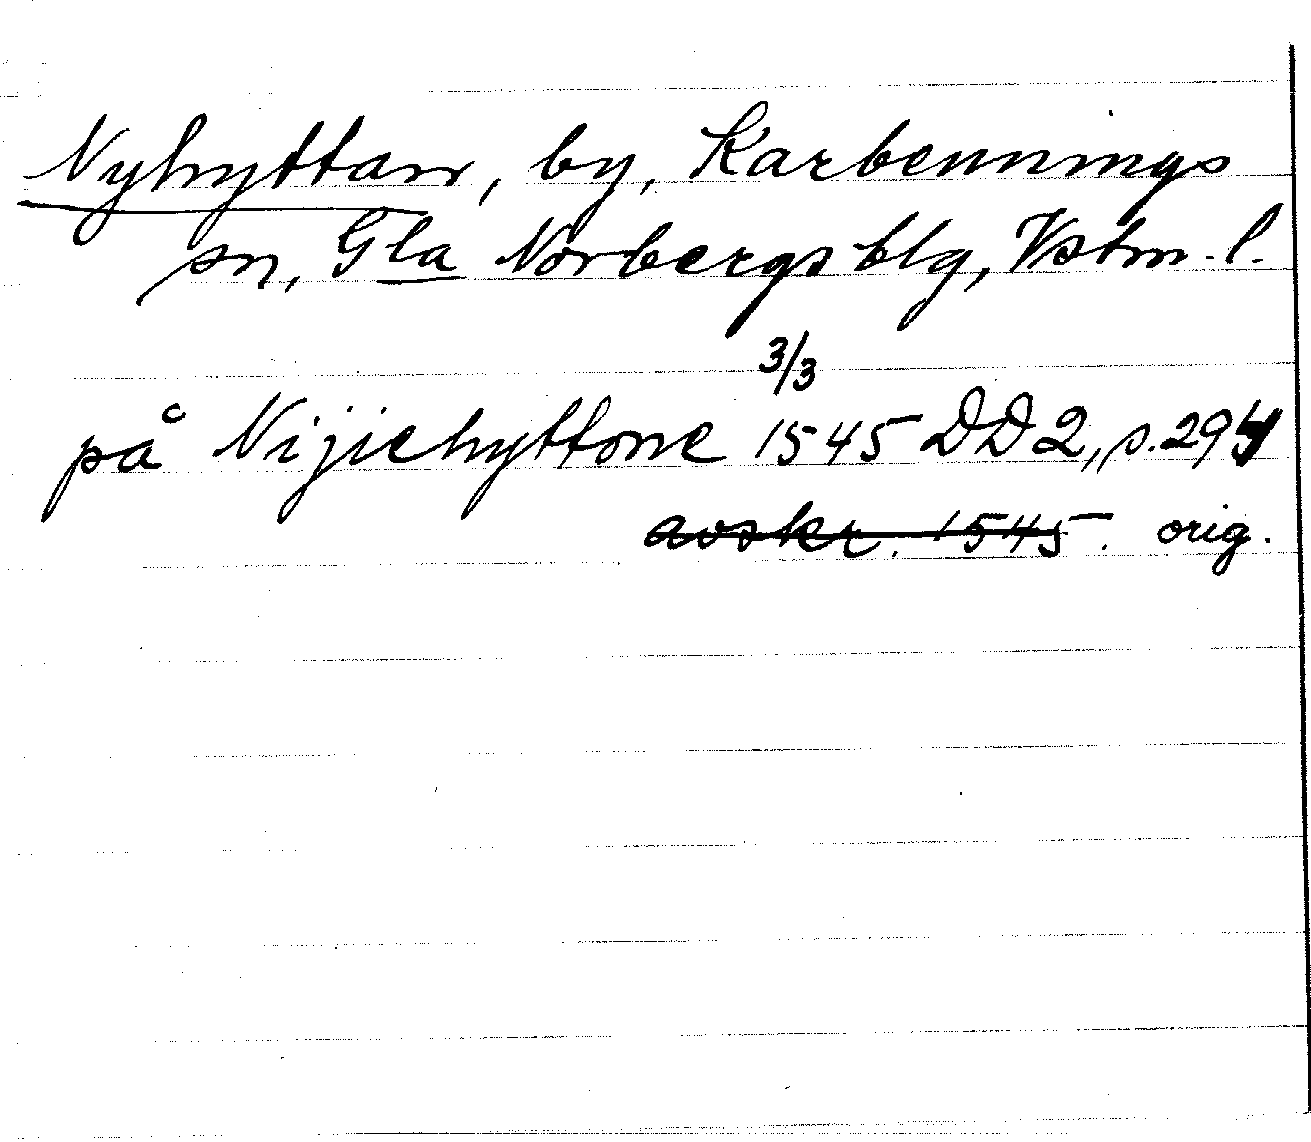 Nyhyttan, by, Karbennings
sn, Gla Norbergs blg, Vstm. l.
3/3
på Nijiehyttone 1545 DD2, s. 294
avskr. 1545. orig.